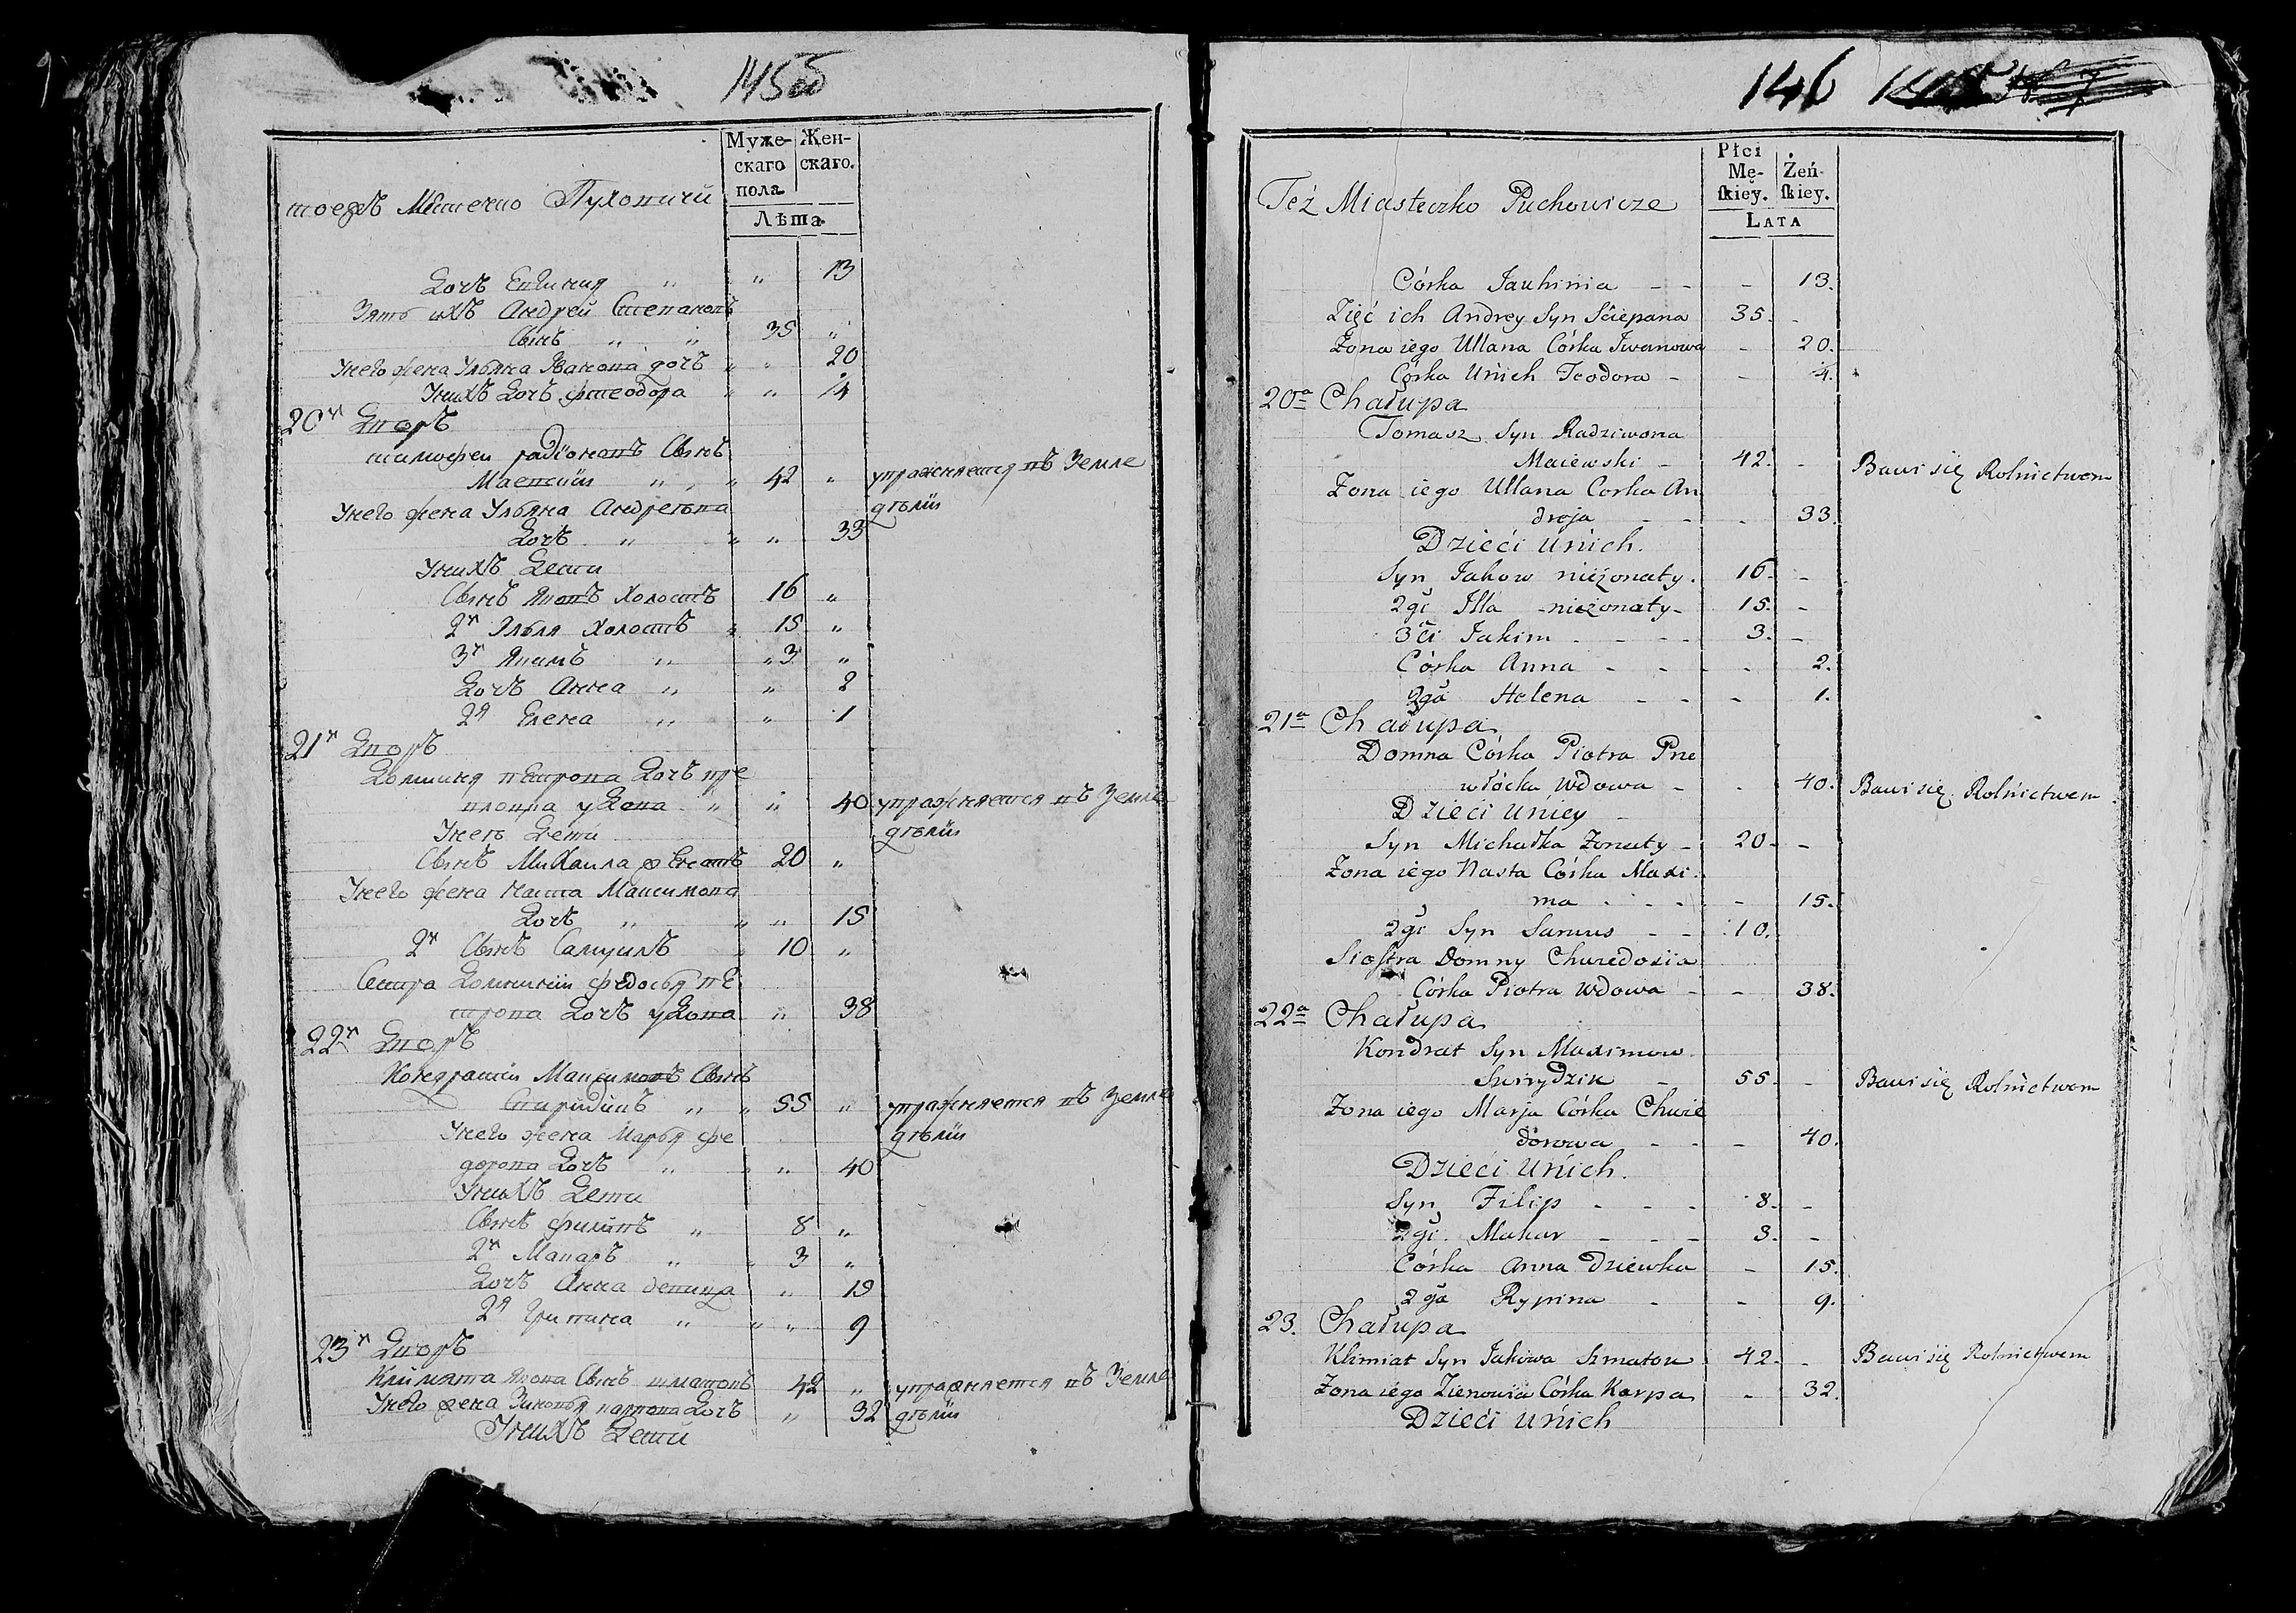 145об
Муже-
скаго
пола
Жен-
скаго.
Лѣта
тоежъ Мѣстечко Пуховичи
Дочь Евгиния " " 13
Зять ихъ Андрей Степановъ
Сынъ " " 35 "
Унего жена Ульяна Иванова дочь " " 20
Унихъ Дочь Фтеодора " " 4
20й Дворъ
тимофей радіоновъ Сынъ
Маевскій " " 42 " упражняется въ Земле
Унего жена Ульяна Андреева
дѣліи
Дочь " " " 33
Унихъ Дети
Сынъ Яковъ Холостъ 16 "
2й Элья Холостъ " 15 "
3й Якимъ " " 3 "
Дочь Анна " " 2
2я Елена " " 1
21й Дворъ
Домникя петрова Дочь пре
влоцка удова " " 40 упражняется въ Земле
Унея Дети
дѣліи
Сынъ Михаила женатъ 20 "
Унего жена Наста Максимова
Дочь " " " 15
2й Сынъ Самуилъ " 10 "
Сестра Домникіи федосья пе
трова Дочь удова " 38
22й Дворъ
Кондратій Максимовъ Сынъ
Свиридикъ " " 55 " упражняется въ Земле
Унего жена Марья фе
дѣліи
дорова Дочь " " " 40
Унихъ Дети
Сынъ филипъ " 8 "
2й Макаръ " " 3 "
Дочь Анна девица " 15
2я Грипина " " " 9
23й Дворъ
Климята Якова Сынъ шматокъ 42 " упражняется въ Земле
Унего жена Зиновья карпова Дочь " 32 дѣліи
Унихъ Дети
146
Płci
Mę-
skiey.
Żeń-
skiey.
LATA
Też Miasteczko Puchowicze
Córka Jauhinia - - - 13.
Zięć ich Andrey Syn Sciepana 35. -
Żona iego Ullana Córka Iwanowa - 20.
Córka Unich Teodora - - 4.
20a Chałupa
Tomasz Syn Radziwona
Maiewski - 42. - Bawi się Rolnictwem
Żona iego Ullana Corka An
dreja - - - 33.
Dzieci Unich.
Syn Jakow nieżonaty. 16. -
2gi Illa - nieżonaty - 15. -
3ci Jakim - - - - 3. -
Córka Anna - - - - 2.
2ga Helena - - - 1.
21a Chałupa
Domna Córka Piotra Prze
włócka Wdowa - - 40. Bawi się Rolnictwem
Dzieci Uniey -
Syn Michałka Żonaty - 20. -
Żona iego Nasta Córka Maxi
ma - - - - - 15.
2gi Syn Samus - - 10.
Siostra Domny Chwiedosia
Córka Piotra Wdowa - - 38.
22a Chałupa
Kondrat Syn Maximow
Swirydzik - 55. - Bawi się Rolnictwem
Żona iego Marja Córka Chwie
dorowa - - - 40.
Dzieci Unich.
Syn Filip - - - 8. -
2gi Makar - - - 3. -
Córka Anna Dziewka - 15.
2ga Rypina - - 9.
23. Chałupa
Klimiat Syn Jakowa Szmatok 42. - Bawi się Rolnictwem
Żona iego Zienowia Córka Karpa - 32.
Dzieci Unich